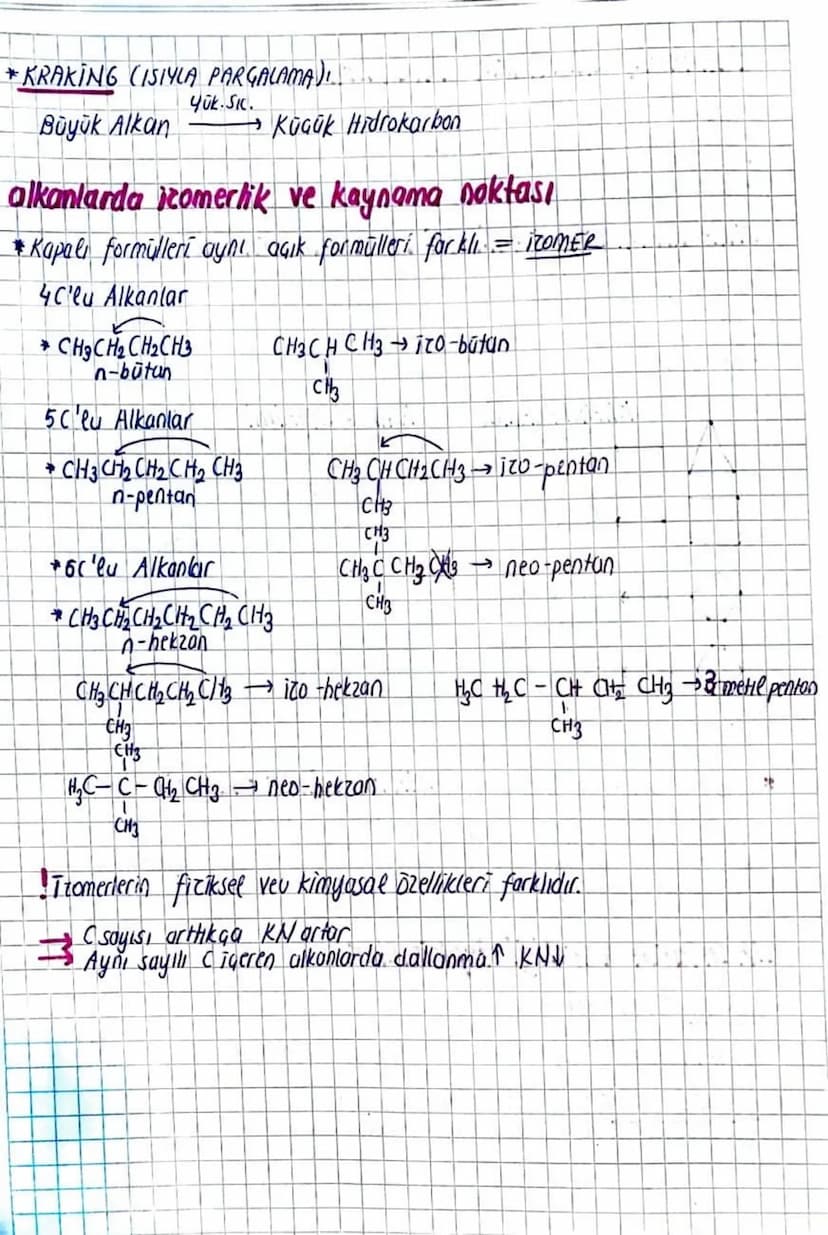 * KRAKİNG (ISIYLA PARÇALAMA):
yük. sıc.
Büyük Alkan → Küçük Hidrokarbon
alkanlarda izomerlik ve kaynama noktası
* Kapalı formülleri aynı açık formülleri farklı = İZOMER
4C'lu Alkanlar
* CH3CH2CH2CH3 CH3CH CH3 → izo-bütan
n-bütan CH3
5C'lu Alkanlar
* CH3CH2CH2CH2CH3 CH3CHCH2CH3 → izo-pentan
n-pentan CH3
CH3
*6C'lu Alkanlar CH3C CH3 → neo-pentan
CH3
* CH3CH2CH2CH2CH2CH3
n-hekzan
CH3CHCH2CH2CH3 → izo-hekzan H3C H2C - CH CH2 CH3 → 3 metil pentan
CH3 CH3
CH3
H3C - C - CH2 CH3 → neo-hekzan
CH3
! İzomerlerin fiziksel vev kimyasal özellikleri farklıdır.
→ C sayısı arttıkça KN artar
→ Aynı sayılı C içeren alkanlarda dallanma ↑ KN↓